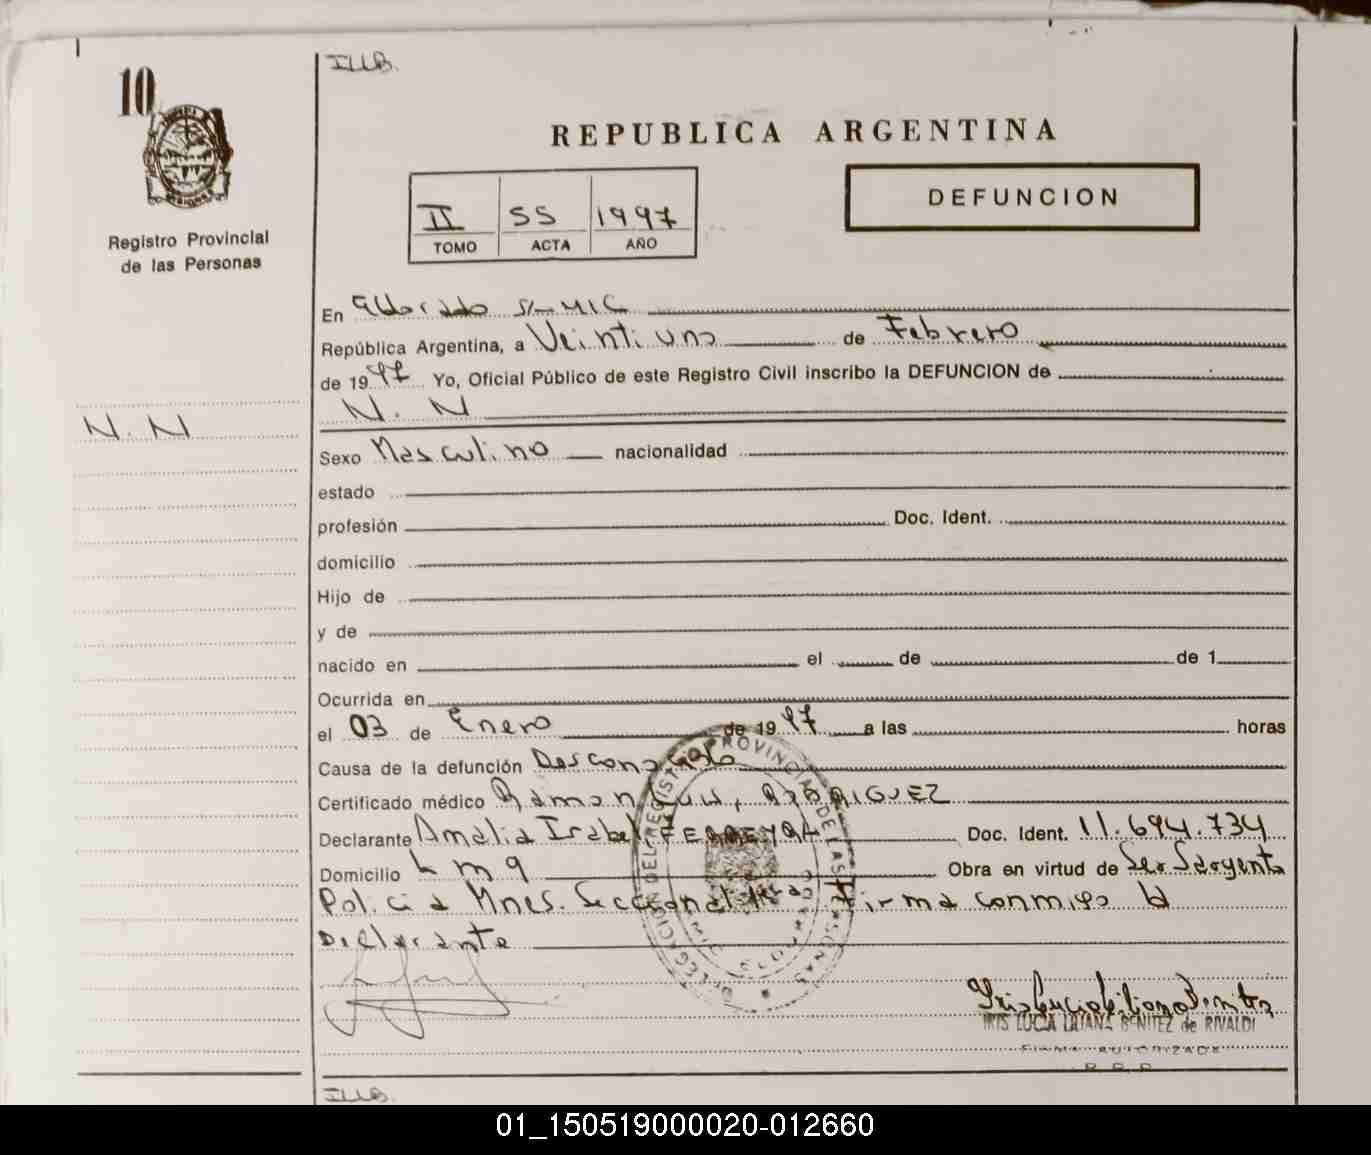 ILLB.
10
REPUBLICA ARGENTINA
DEFUNCION
II 55 1997
TOMO ACTA AÑO
Registro Provincial
de las Personas
En Eldorado
República Argentina, a Veintiuno de Febrero
de 1997 Yo, Oficial Público de este Registro Civil inscribo la DEFUNCION de
N. N
N. N
Sexo Masculino nacionalidad
estado
profesión Doc. Ident.
domicilio
Hijo de
y de
nacido en el de de 1
Ocurrida en
el 03 de Enero de 1997 a las horas
Causa de la defunción Desconocido
Certificado médico Ramon Luis, RODRIGUEZ
Declarante Amalia Isabel FERREYRA Doc. Ident. 11.694.734
Domicilio Obra en virtud de Ser Sargento
Policia Mnes. Seccional 1era Firma conmigo la
Declarante
DELEGACION DEL REGISTRO PROVINCIAL DE LAS PERSONAS
IRIS LUCIA LILIANA BENITEZ de RIVALDI
FIRMA AUTORIZADA
R. P. P.
ILLB.
01_150519000020-012660